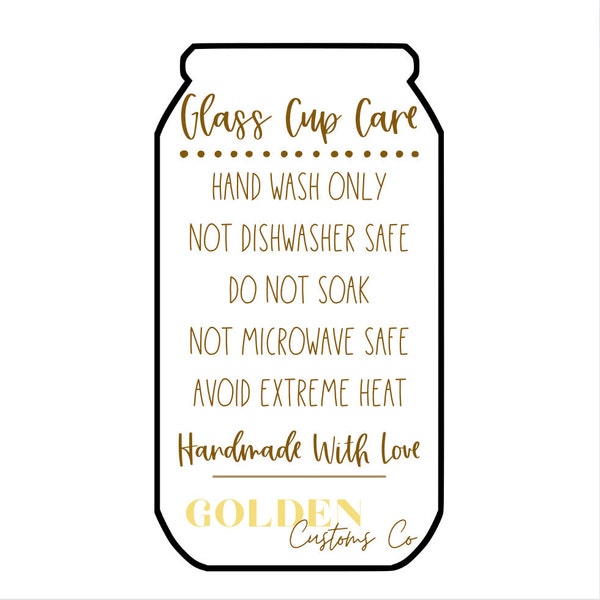 Glass Cup Care
HAND WASH ONLY
NOT DISHWASHER SAFE
DO NOT SOAK
NOT MICROWAVE SAFE
AVOID EXTREME HEAT
Handmade With Love
GOLDEN
Customs Co